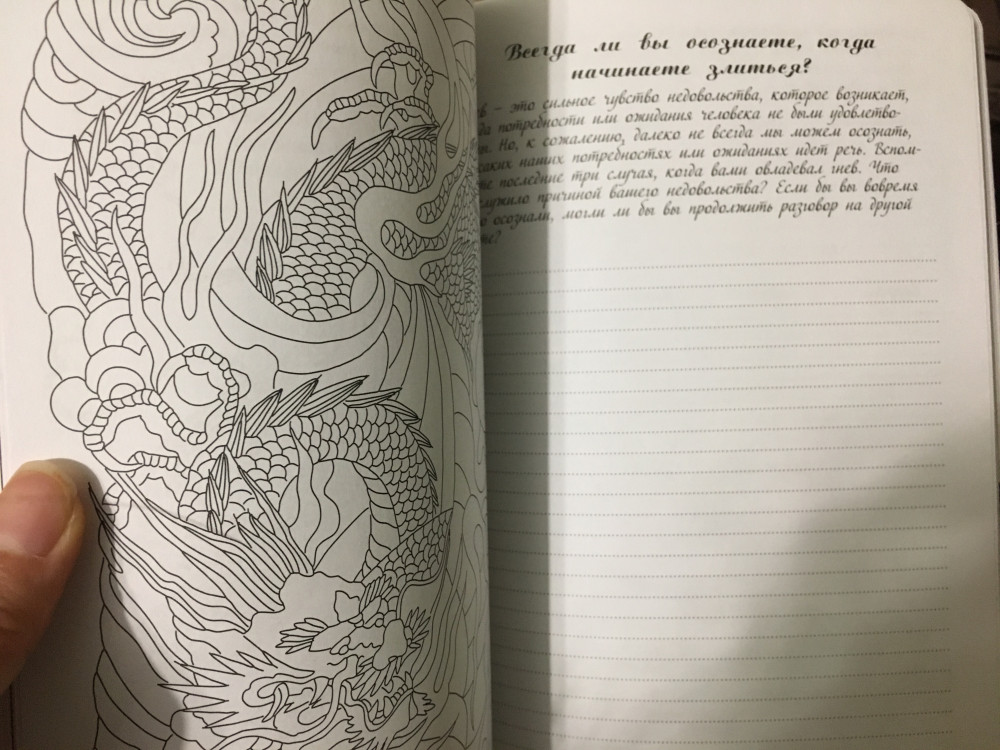 Всегда ли вы осознаете, когда
начинаете злиться?
– это сильное чувство недовольства, которое возникает,
потребности или ожидания человека не были удовлетво-
Но, к сожалению, далеко не всегда мы можем осознать,
каких наших потребностях или ожиданиях идет речь. Вспом-
последние три случая, когда вами овладевал гнев. Что
служило причиной вашего недовольства? Если бы вы вовремя
осознали, могли ли бы вы продолжить разговор на другой